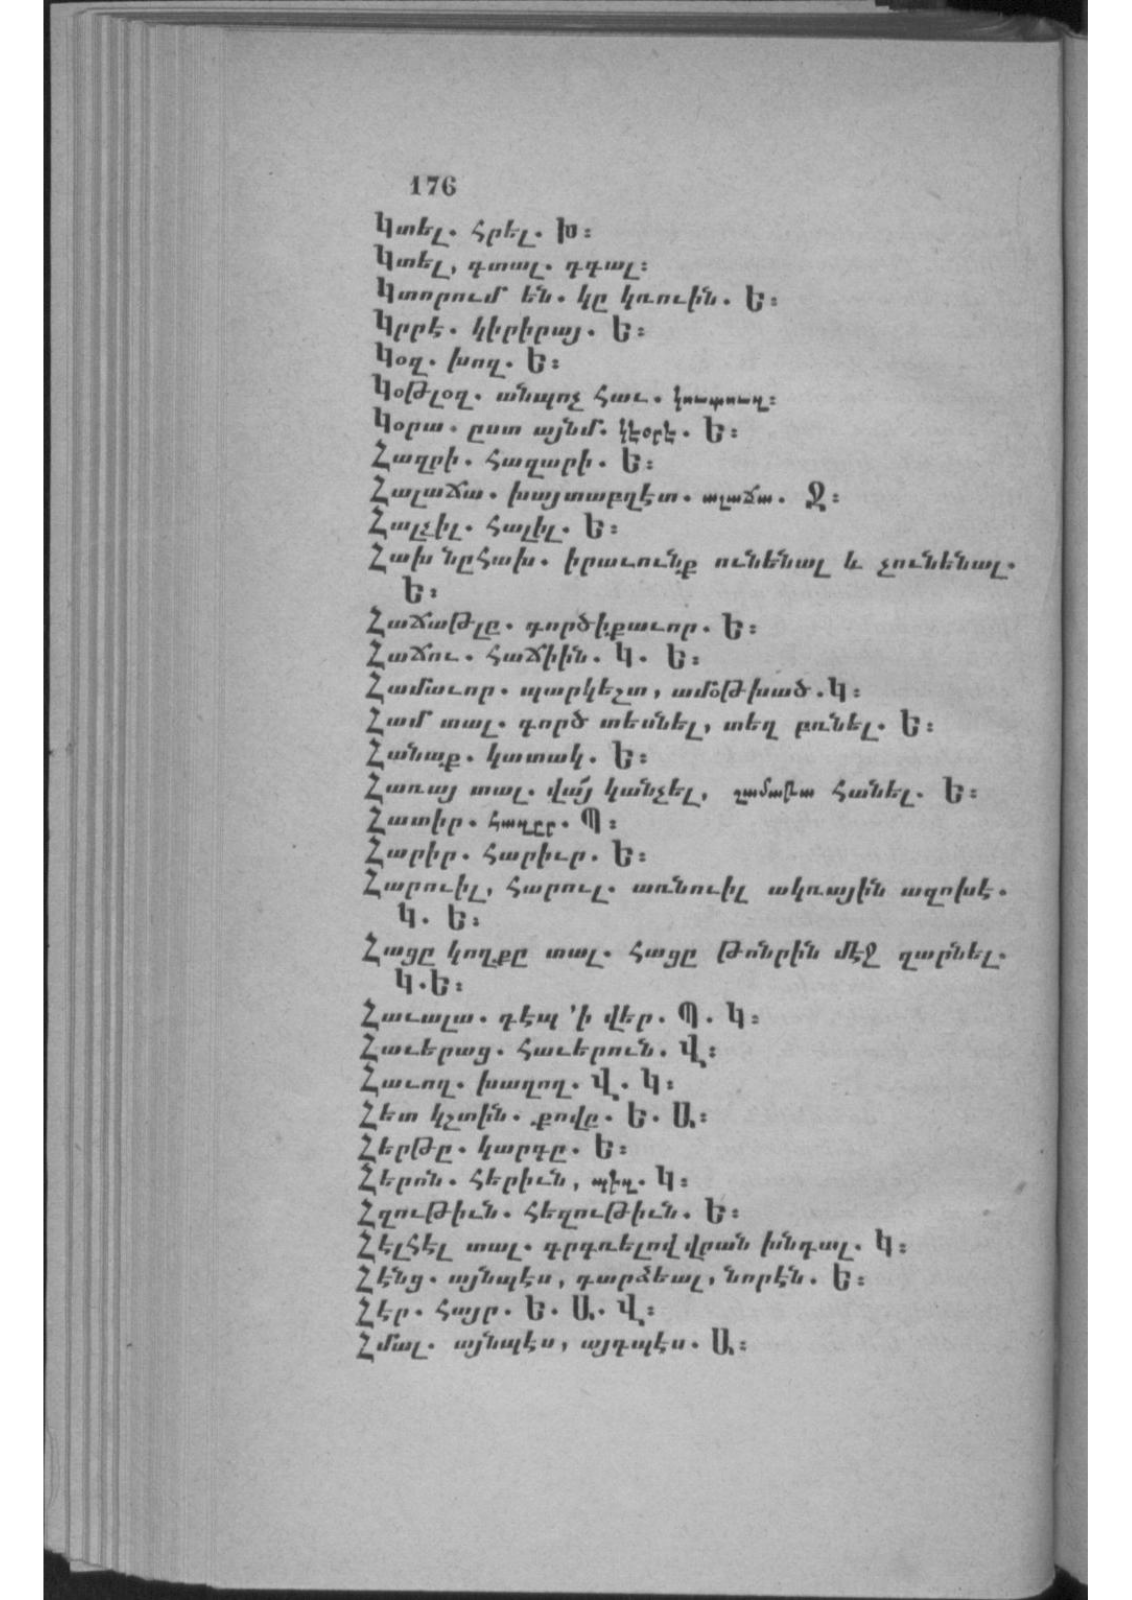 176
Կտել. հրել. Խ։
Կտել, գտալ. դգալ։
Կտորում են. կը կռուին. Ե։
Կրրէ. կիրիրայ. Ե։
Կօզ. խող. Ե։
Կօթլօզ. անպոչ հաւ.
Կօրա. ըստ այնմ. կէօրէ. Ե։
Հազըի. հազարի. Ե։
Հալաճա. խայտաբղէտ. ալաճա. Ջ։
Հալչիլ. հալիլ. Ե։
Հախ նըհախ. իրաւունք ունենալ և չունենալ.
Ե։
Հաճաթլը. գործիքաւոր. Ե։
Հաճու. հաճիին. Կ. Ե։
Համաւոր. պարկեշտ, ամօթխած. Կ։
Համ տալ. գործ տեսնել, տեղ բռնել. Ե։
Հանաք. կատակ. Ե։
Հառայ տալ. վա՜յ կանչել, շամաթա հանել. Ե։
Հատիր. հազըր. Պ։
Հարիր. հարիւր. Ե։
Հարուիլ, հարուլ. առնուիլ ակռային ազոխէ.
Կ. Ե։
Հացը կողքը տալ. հացը թոնրին մէջ զարնել.
Կ. Ե։
Հաւալա. դէպ ՚ի վեր. Պ. Կ։
Հաւերաց. հաւերուն. Վ։
Հաւող. խաղող. Վ. Կ։
Հետ կշտին. քովը. Ե. Ա։
Հերթը. կարգը. Ե։
Հերոն. հերիւն, պիզ. Կ։
Հզութիւն. հեզութիւն. Ե։
Հէլհէլ տալ. գրգռելով վրան խնդալ. Կ։
Հէնց. այնպէս, դարձեալ, նորէն. Ե։
Հէր. հայր. Ե. Ա. Վ։
Հմալ. այնպէս, այդպէս. Ա։